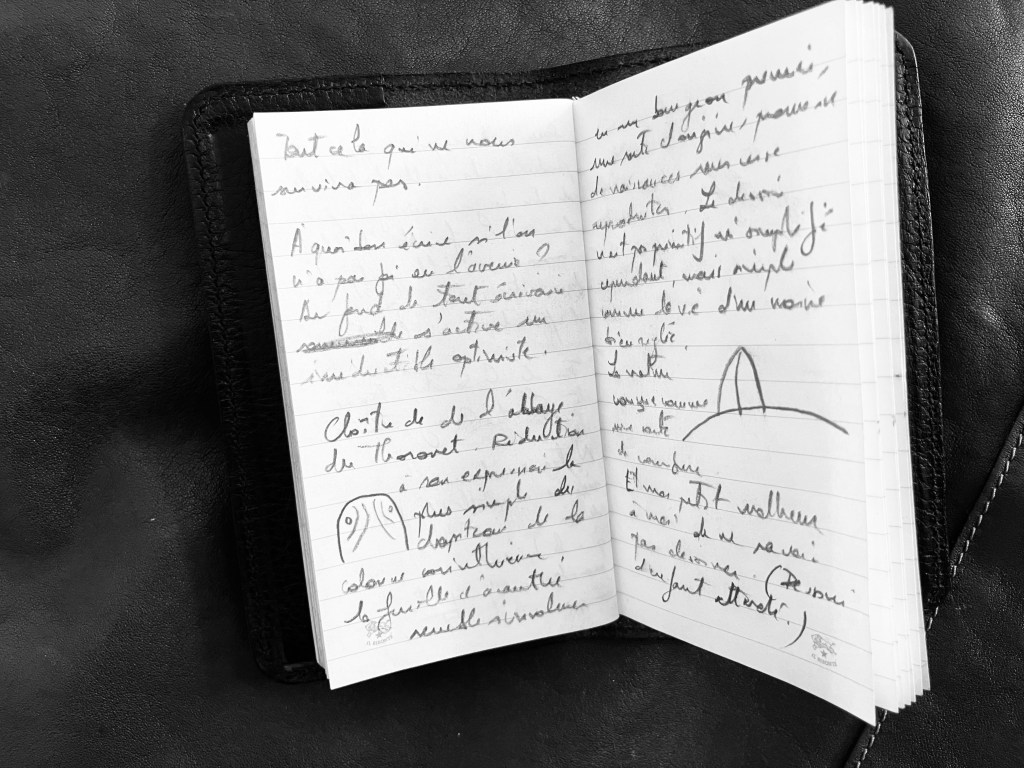 Tout cela qui ne nous
survivra pas.
A quoi bon écrire si l'on
n'a pas foi en l'avenir ?
Au fond de tout écrivain
s'active un
irréductible optimiste.
Cloître de de l'abbaye
du Thoronet. Réduction
à son expression la
plus simple du
chapiteau de la
colonne corinthienne,
la feuille d'acanthe
semble s'involuer
en un bourgeon premier,
une d'origine, promesse
de naissances sans cesse
reproduites. Le dessin
n'est pas primitif ni simplifié
cependant, mais simple
comme la vie d'un moine
bien réglé.
La nature
conçue comme
une voûte
de
Et mon petit malheur
à moi de ne savoir
pas dessiner. (Dessin
d'enfant attardé.)